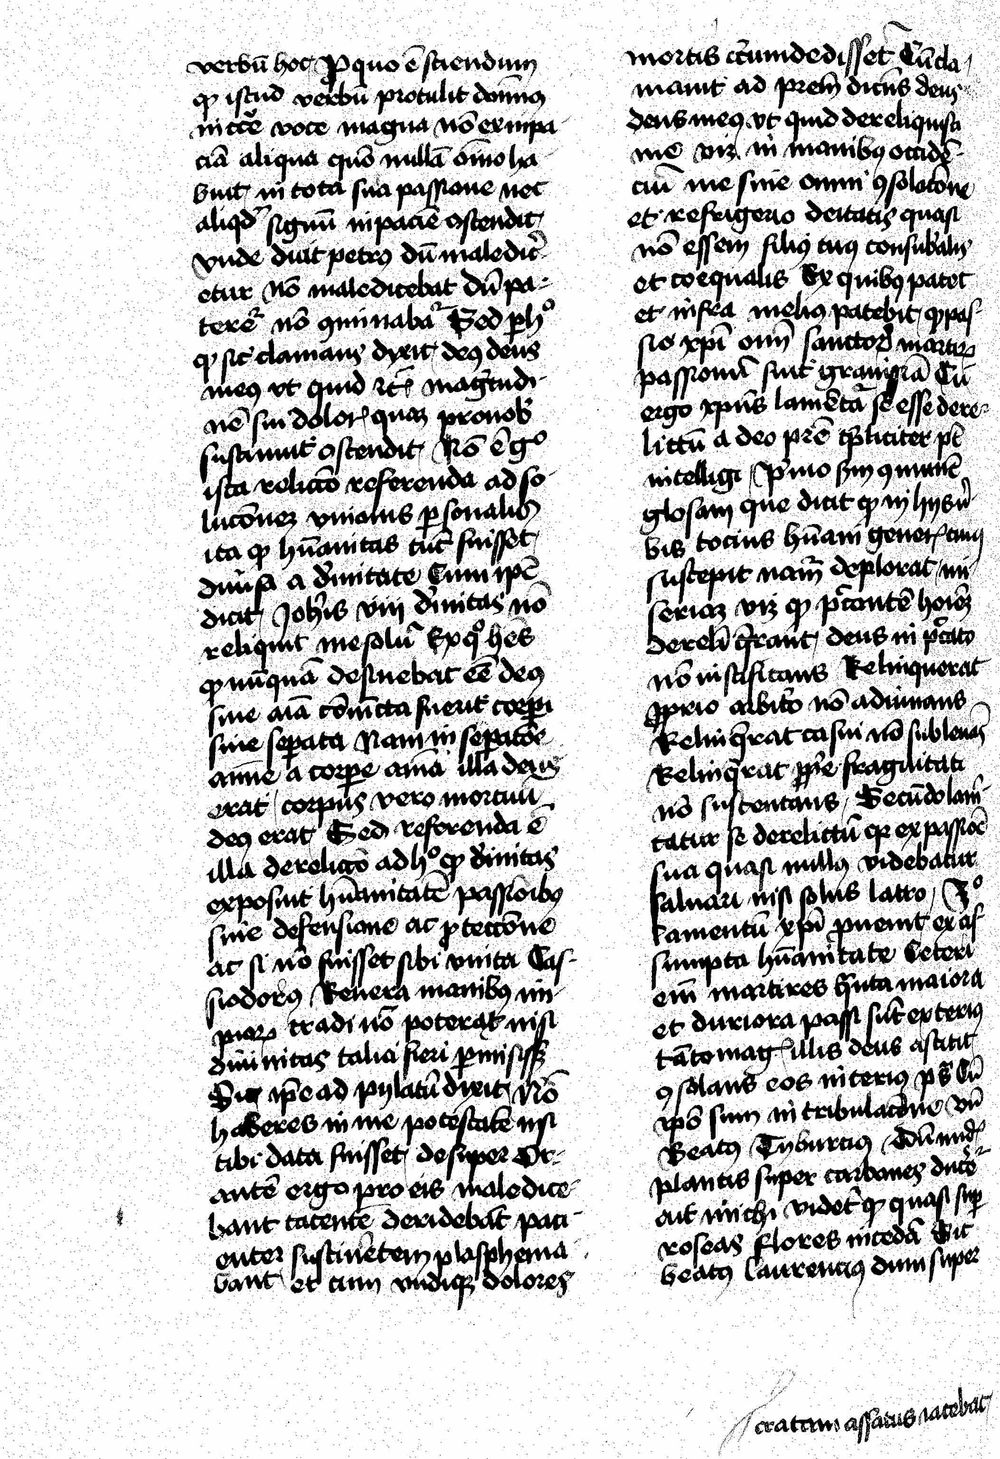 verbū hoc Pro quo ē sciendum
qꝫ istud verbū protulit dominꝰ
in cruce voce magna nō ex inpa-
ciā aliqua quō nullā omīo ha-
buit in tota sua passione nec
aliqd signū inpacie ostendit
vnde dicit petrꝰ dū maledice-
retur nō maledicebat dū pa-
teret̉ nō ꝯminabat̉ Sed ꝑ hᵒ
qꝫ sic clamans dixit deꝰ deus
meꝰ vt quid rc̄ magnitudi-
nē sui dolorꝭ quaꝫ pro nob̄
sustinuit ostendit Nō ē gᵒ
ista relictō referenda ad so-
lucōnem vnionis ꝑsonalis
ita qꝫ hūanitas tūc fuisset
diuisa a diuinitate Cum ipē
dicit Joh̄is viii diuinitas nō
reliquit me solū Ex quo hēs
qꝫ nūquā desinebat eē deꝰ
siue aīa cōiūcta fuerit corpi
siue seꝑata Nam in seꝑatōe
anime a corpe aīma illa deus
erat corpus vero mortuū
deꝰ erat Sed referenda ē
illa derelictō ad hᵒ qꝫ diuinitas
exposuit hūanitatē passioibꝰ
sine defensione ac ꝓtectōne
ac si nō fuisset sibi vnita Cas-
siodorꝰ Reuera manibꝰ im-
pioꝝ tradi nō poterat nisi
diuinitas talia fieri ꝑmisissꝫ
Sic ipē ad pylatū dixit Nō
haberes in me potestatē nisi
tibi data fuisset desuper Or-
antē ergo pro eis maledice-
bant tacentē deridebāt paci-
enter sustinētem plasphema-
bant et cum vndiqꝫ dolores
mortis circumdedisset Cū cla-
mauit ad prem̄ dicēs deus
deus meꝰ vt quid dereliquisti
me viꝫ in manibꝰ occidē-
ciū me sine omni ꝯsolatōne
et refrigerio deitatis quasi
nō essem filiꝰ tuꝰ consubālis
et coequalis Ex quibꝰ patet
et infra meliꝰ patebit qꝫ pas-
sio xp̄i omī sanctoꝝ martiꝝ
passionū fuit grauissīa Cū
ergo xpūs lamētat̉ se esse dere-
lictū a deo prē tripliciter pt̄
intelligi Primo sm̄ ꝯmunē
glosam que dicit qꝫ in hijs
bis tocius hūani generꝭ cuiꝰ
suscepit nām deplorat mi-
seriaꝫ viꝫ qꝫ pctantē hoīem
dereliquerat deus in pctato
nō iustificans Relinquerat
ꝓprio arbitrio nō adiuuans
Relinq̄rat casui nō subleuās
Relinq̄rat ꝓpe fragilitati
nō sustentans Secūdo lam-
tatur se derelictū qꝫ ex passiōe
sua quasi nullꝰ videbatur
saluari nisi solus latro 3ᵒ
lamentū xp̄i ꝓuenit ex as-
sumpta hūanitate Ceteri
em̄ martires q̄nta maiora
et duriora passi sūt exteriꝰ
tāto magꝭ illis deus astitit
ꝯsolans eos interius pꝭ Cū
ipso sum in tribulacōne vn̄
Beatꝰ Tyburciꝰ Dū nudꝭ
plantis super carbones duce-
ret michi videt̉ qꝫ quasi sup
roseas flores incedā Sic
beatꝰ laurenciꝰ dum super
cratem assatus iacebat